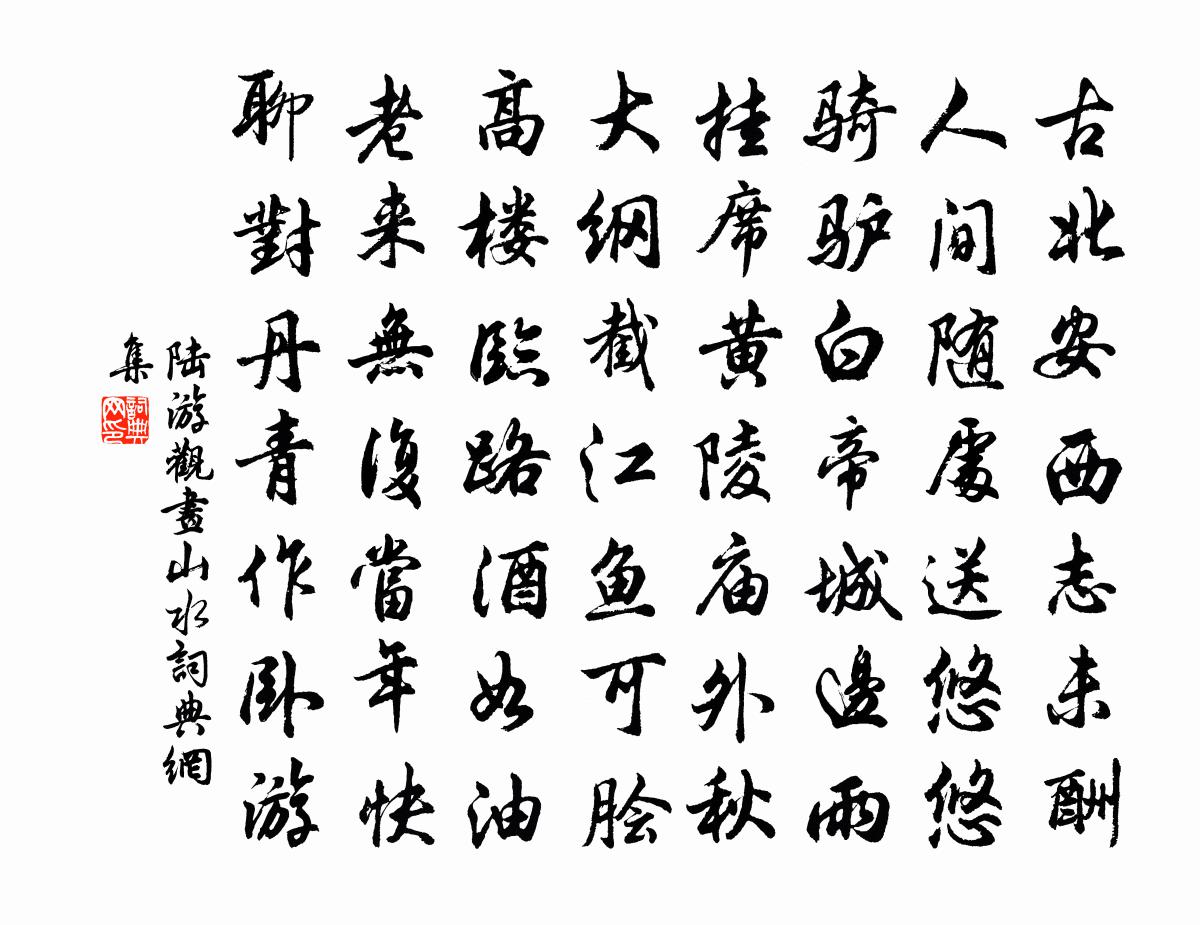 古北安西志未酬
人间随處送悠悠
骑驴白帝城邊雨
挂席黄陵庙外秋
大纲截江鱼可脍
高楼臨路酒如油
老来無復當年快
聊對丹青作卧游
陆游觀畫山水詞典網
集
詞典網印